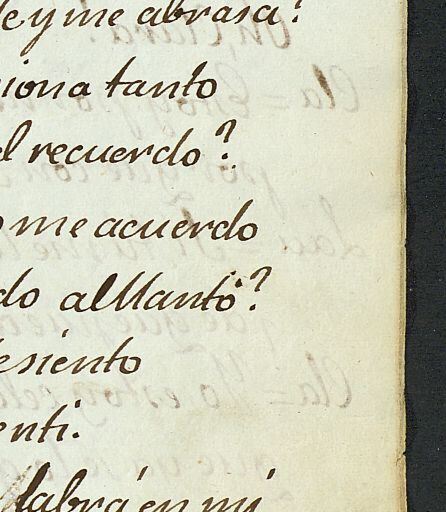 e y me abrasa?
iona tanto
el recuerdo?
o me acuerdo
do al llanto?
esiento
enti.
labrá en mi